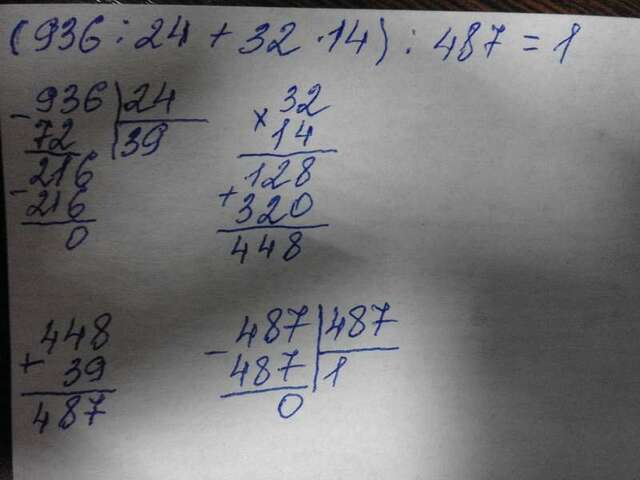 (936 : 24 + 32 · 14) : 487 = 1
- 936 | 24
72 | 39
- 216
216
0
32
× 14
128
+ 320
448
448
+ 39
487
- 487 | 487
487 | 1
0